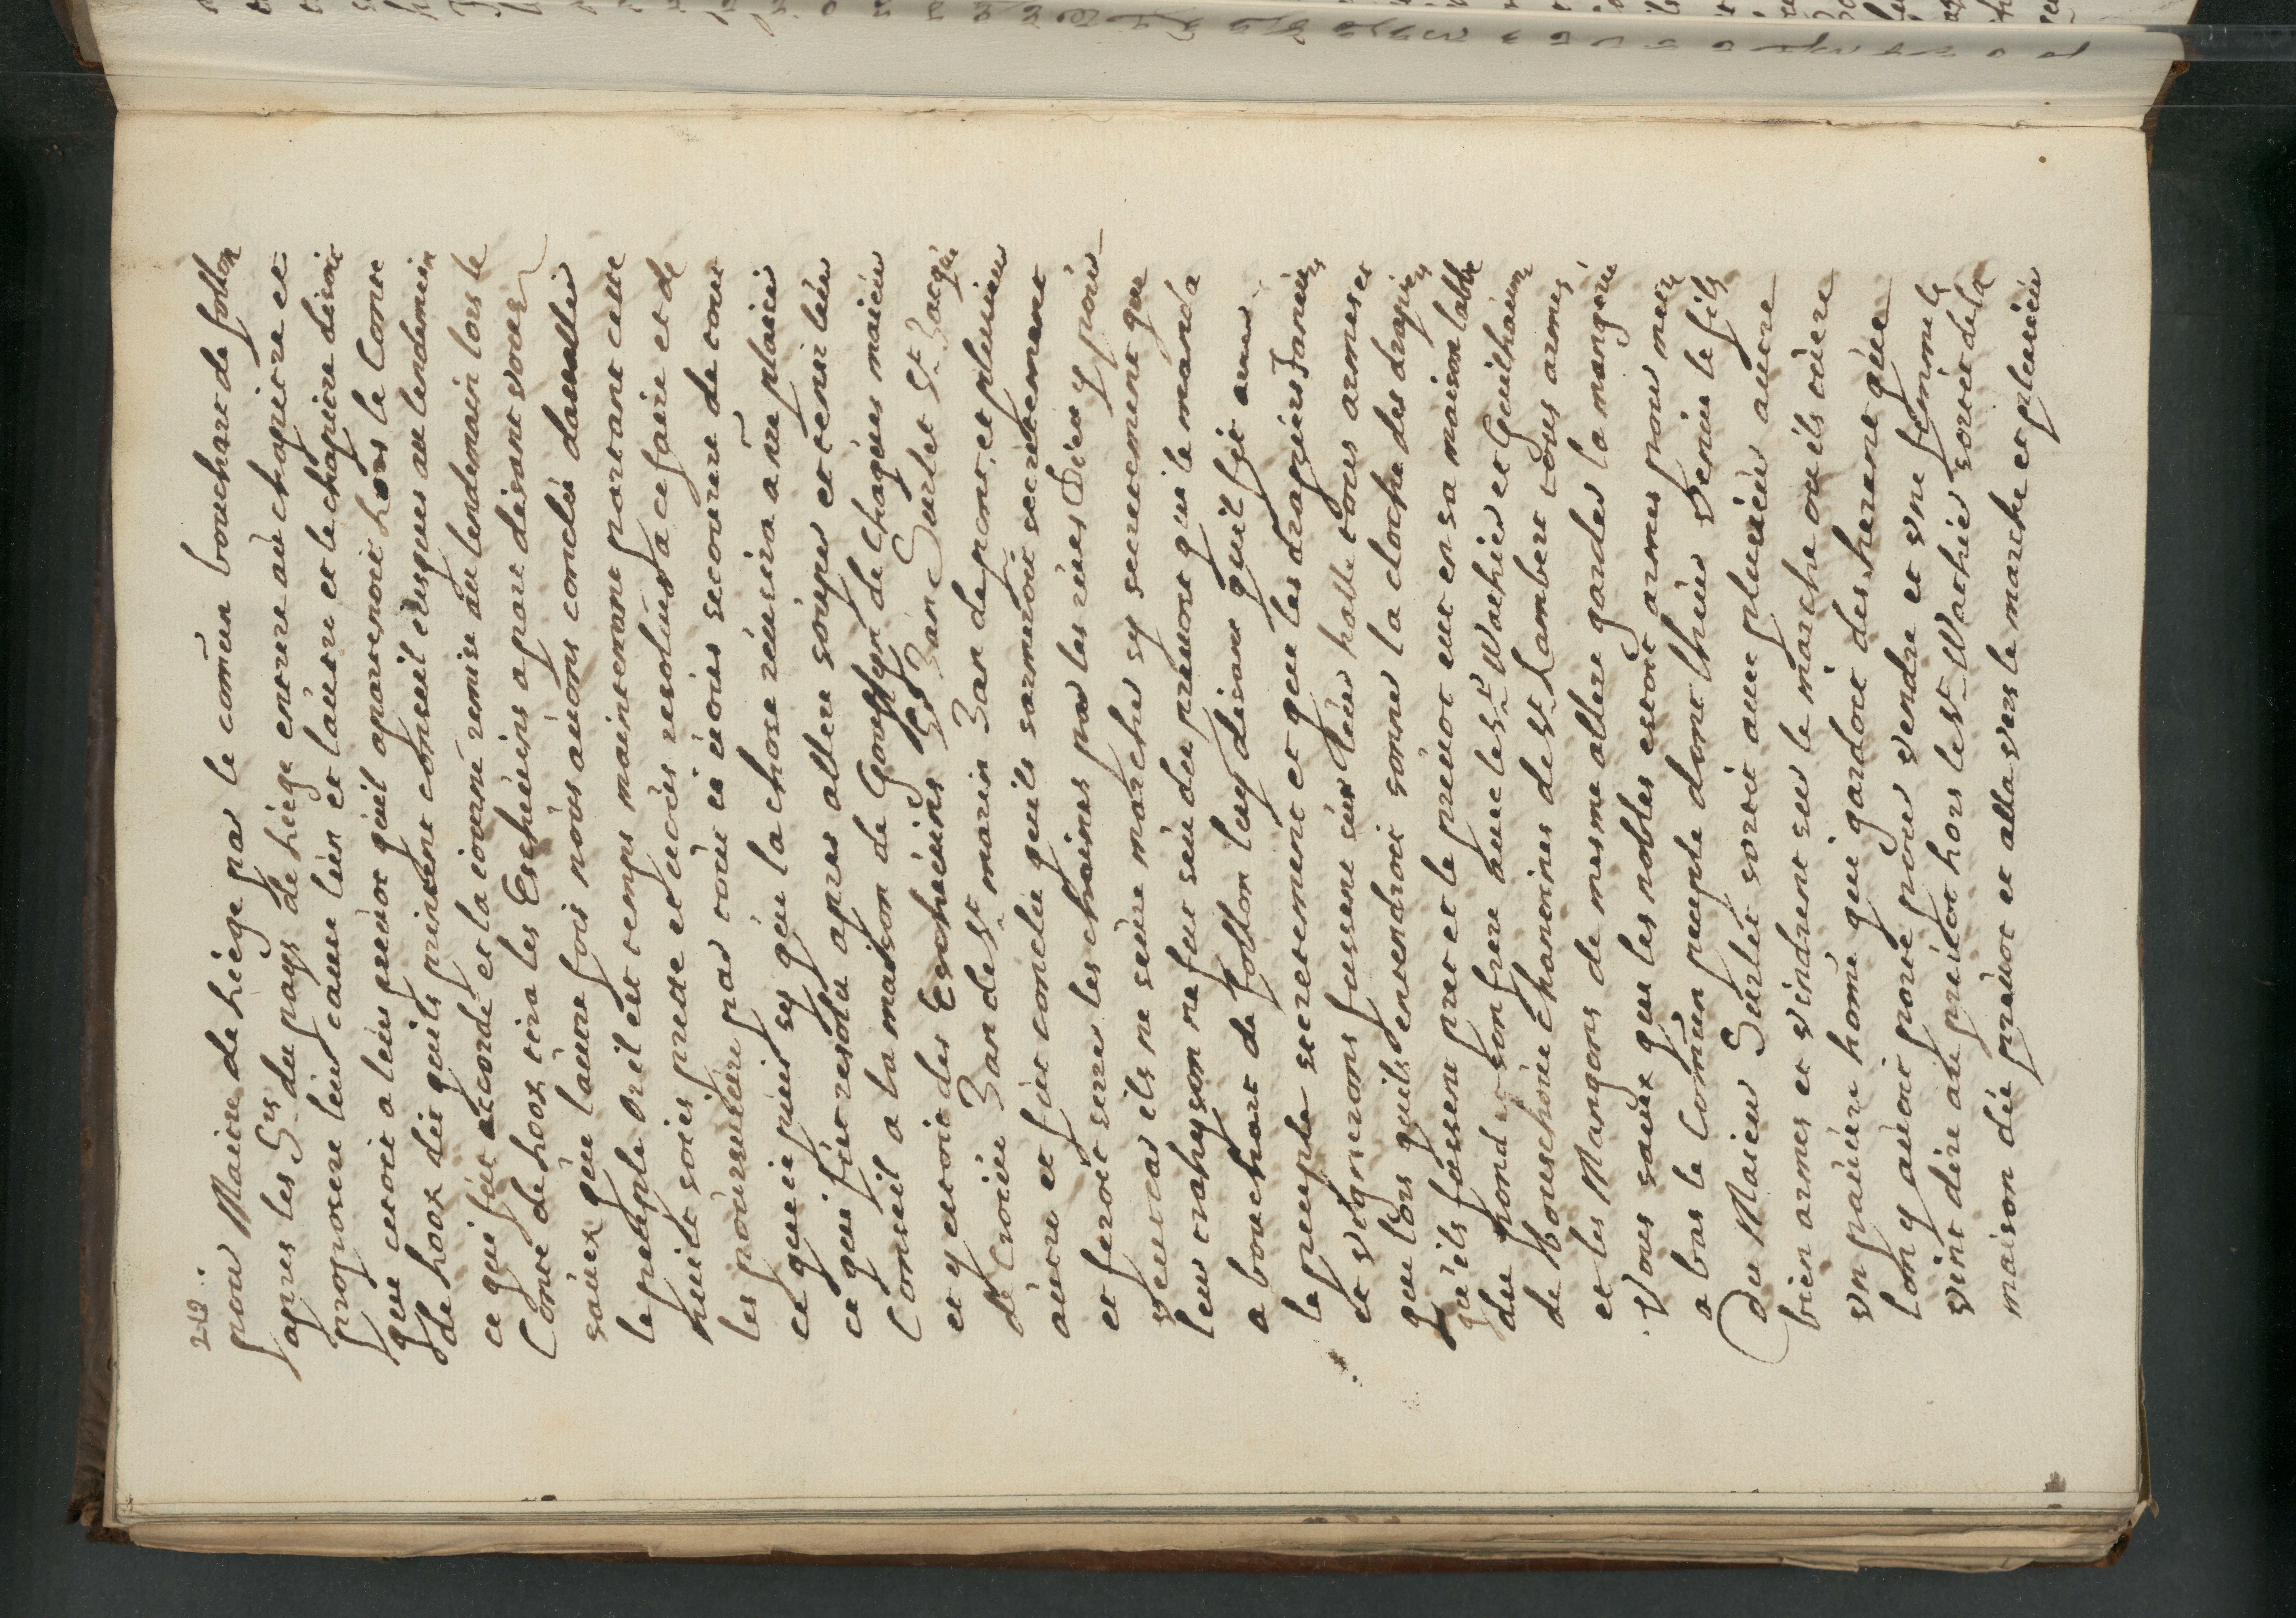 212.
pour Maitre de Liége par le comūn bouchare de follon
apres les Srs du pays de Liége entrere aù chapitre et
proposere leùr caùse lùn et laùtre et le chapitre disoit
que cetoit a leùr prevôt qùil apartenoit hors le Conte
de hoox dit quils prinsent conseil iùsques aù lendemain
ce qui fùt accordé et la iourné remise aù lendemain lors le
Conte de hoox tira les Eschevins apart disant voùs
saùex qùe laùtre fois noùs aùons conclù daualler
le peteple or il est temps maintenant partant cette
nuite soiés prette et ie ùoùs resolùs a ce faire et de
les poùrsuiùre par toùt ie ùoùs secourere de tout
ce que ie pùis sy qùe la chose réussira a ñre plaisir
ce qui fùt resolù apres allere soùper et tenir leùr
Conseil a la maison de Gontÿer de Chaqùes maieùr
et y estoit des Eschevins Jan Surlet St Jacqùe
de Croisie Jan de St marin Jan de pont, et plusieur
aùtre et fùt conclù quils sarmeroit secretement
et feroit serrer les chaines par les rùes Dieu y poùr
veut car ils ne seùre marcher sy secretement que
leur trahyson ne fut seùe dù prevot qui le manda
a bouchart de follon luy disant quil fit armer
le peuple secretement et que les drapiers Tanneurs
et vignerons fussent sùr leùr halle toùs armes et
que lors quils entendroit sonner la cloche des drapiers
qùils fùssent pret et le preùot eùt en sa maison labbé
dù pond et son frere aùec le St Wathier et Guilhaùme
de boùrschoùe chanoines de St Lambert toùs armes
et les Mangons de mesme allere garder la mangerie
Voùs saùex que les nobles estoit armes pour metr
a bas le Comūn peuple dont thier Venùe le fils
Du Maieur Sùrlet sortit aùec plusieùr autre
bien armes et vindrent sur le marche où ils tùere
vn paùùre home qui gardoit des herent qùe
lon y aùoit porte poùr vendre et vne femme le
vint dire aù preùot hors le St Wathier sortit de la
maison dù preùot et alla vers le marche et plusieùr